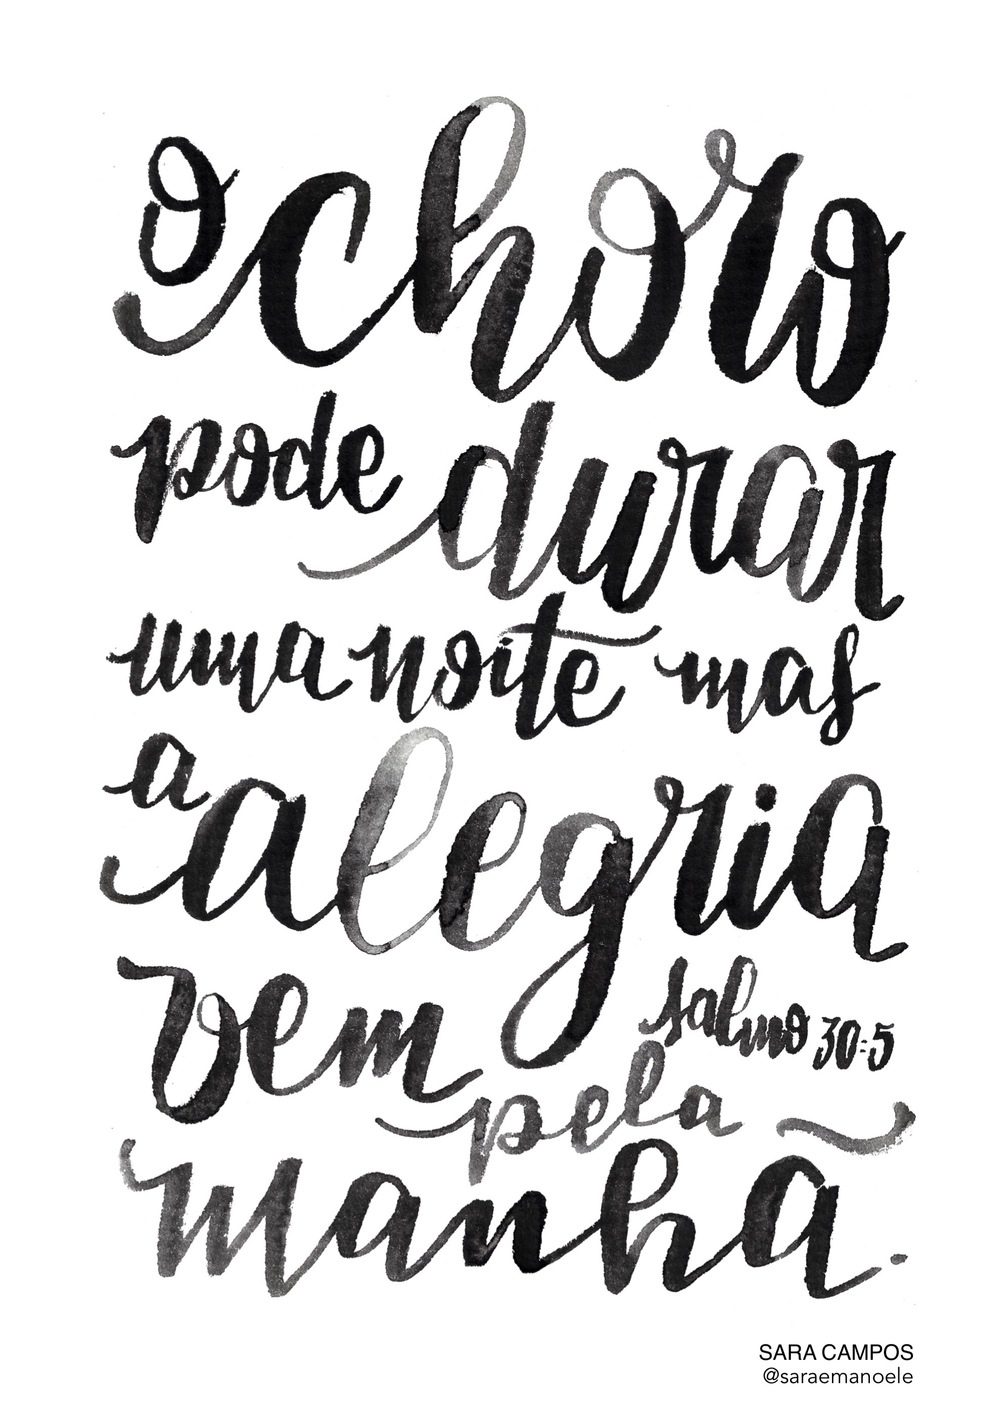 o choro
pode durar
uma noite mas
a alegria
vem
salmo 30:5
pela
manhã.
SARA CAMPOS
@saraemanoele